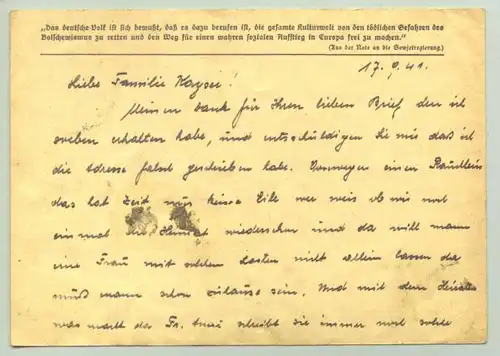 „Das deutsche Volk ist sich bewußt, daß es dazu berufen ist, die gesamte Kulturwelt von den tödlichen Gefahren des
Bolschewismus zu retten und den Weg für einen wahren sozialen Aufstieg in Europa frei zu machen."
(Aus der Note an die Sowjetregierung.)
17.9.41.
Liebe Familie Kayser!
Meinen dank für Ihren lieben Brief den ich
soeben erhalten habe, und entschuldigen Sie mir daß ich
die Adresse falsch geschrieben habe. Von wegen einen
das hat Zeit nur keine Eile wer weis ob wir noch
ein mal die Heimat wiedersehen und da will mann
eine Frau mit solchen Lasten nicht allein lassen da
muß mann schon zuhause sein. Und mit dem Heiraten
was macht das Fr. schreibt sie immer noch solche